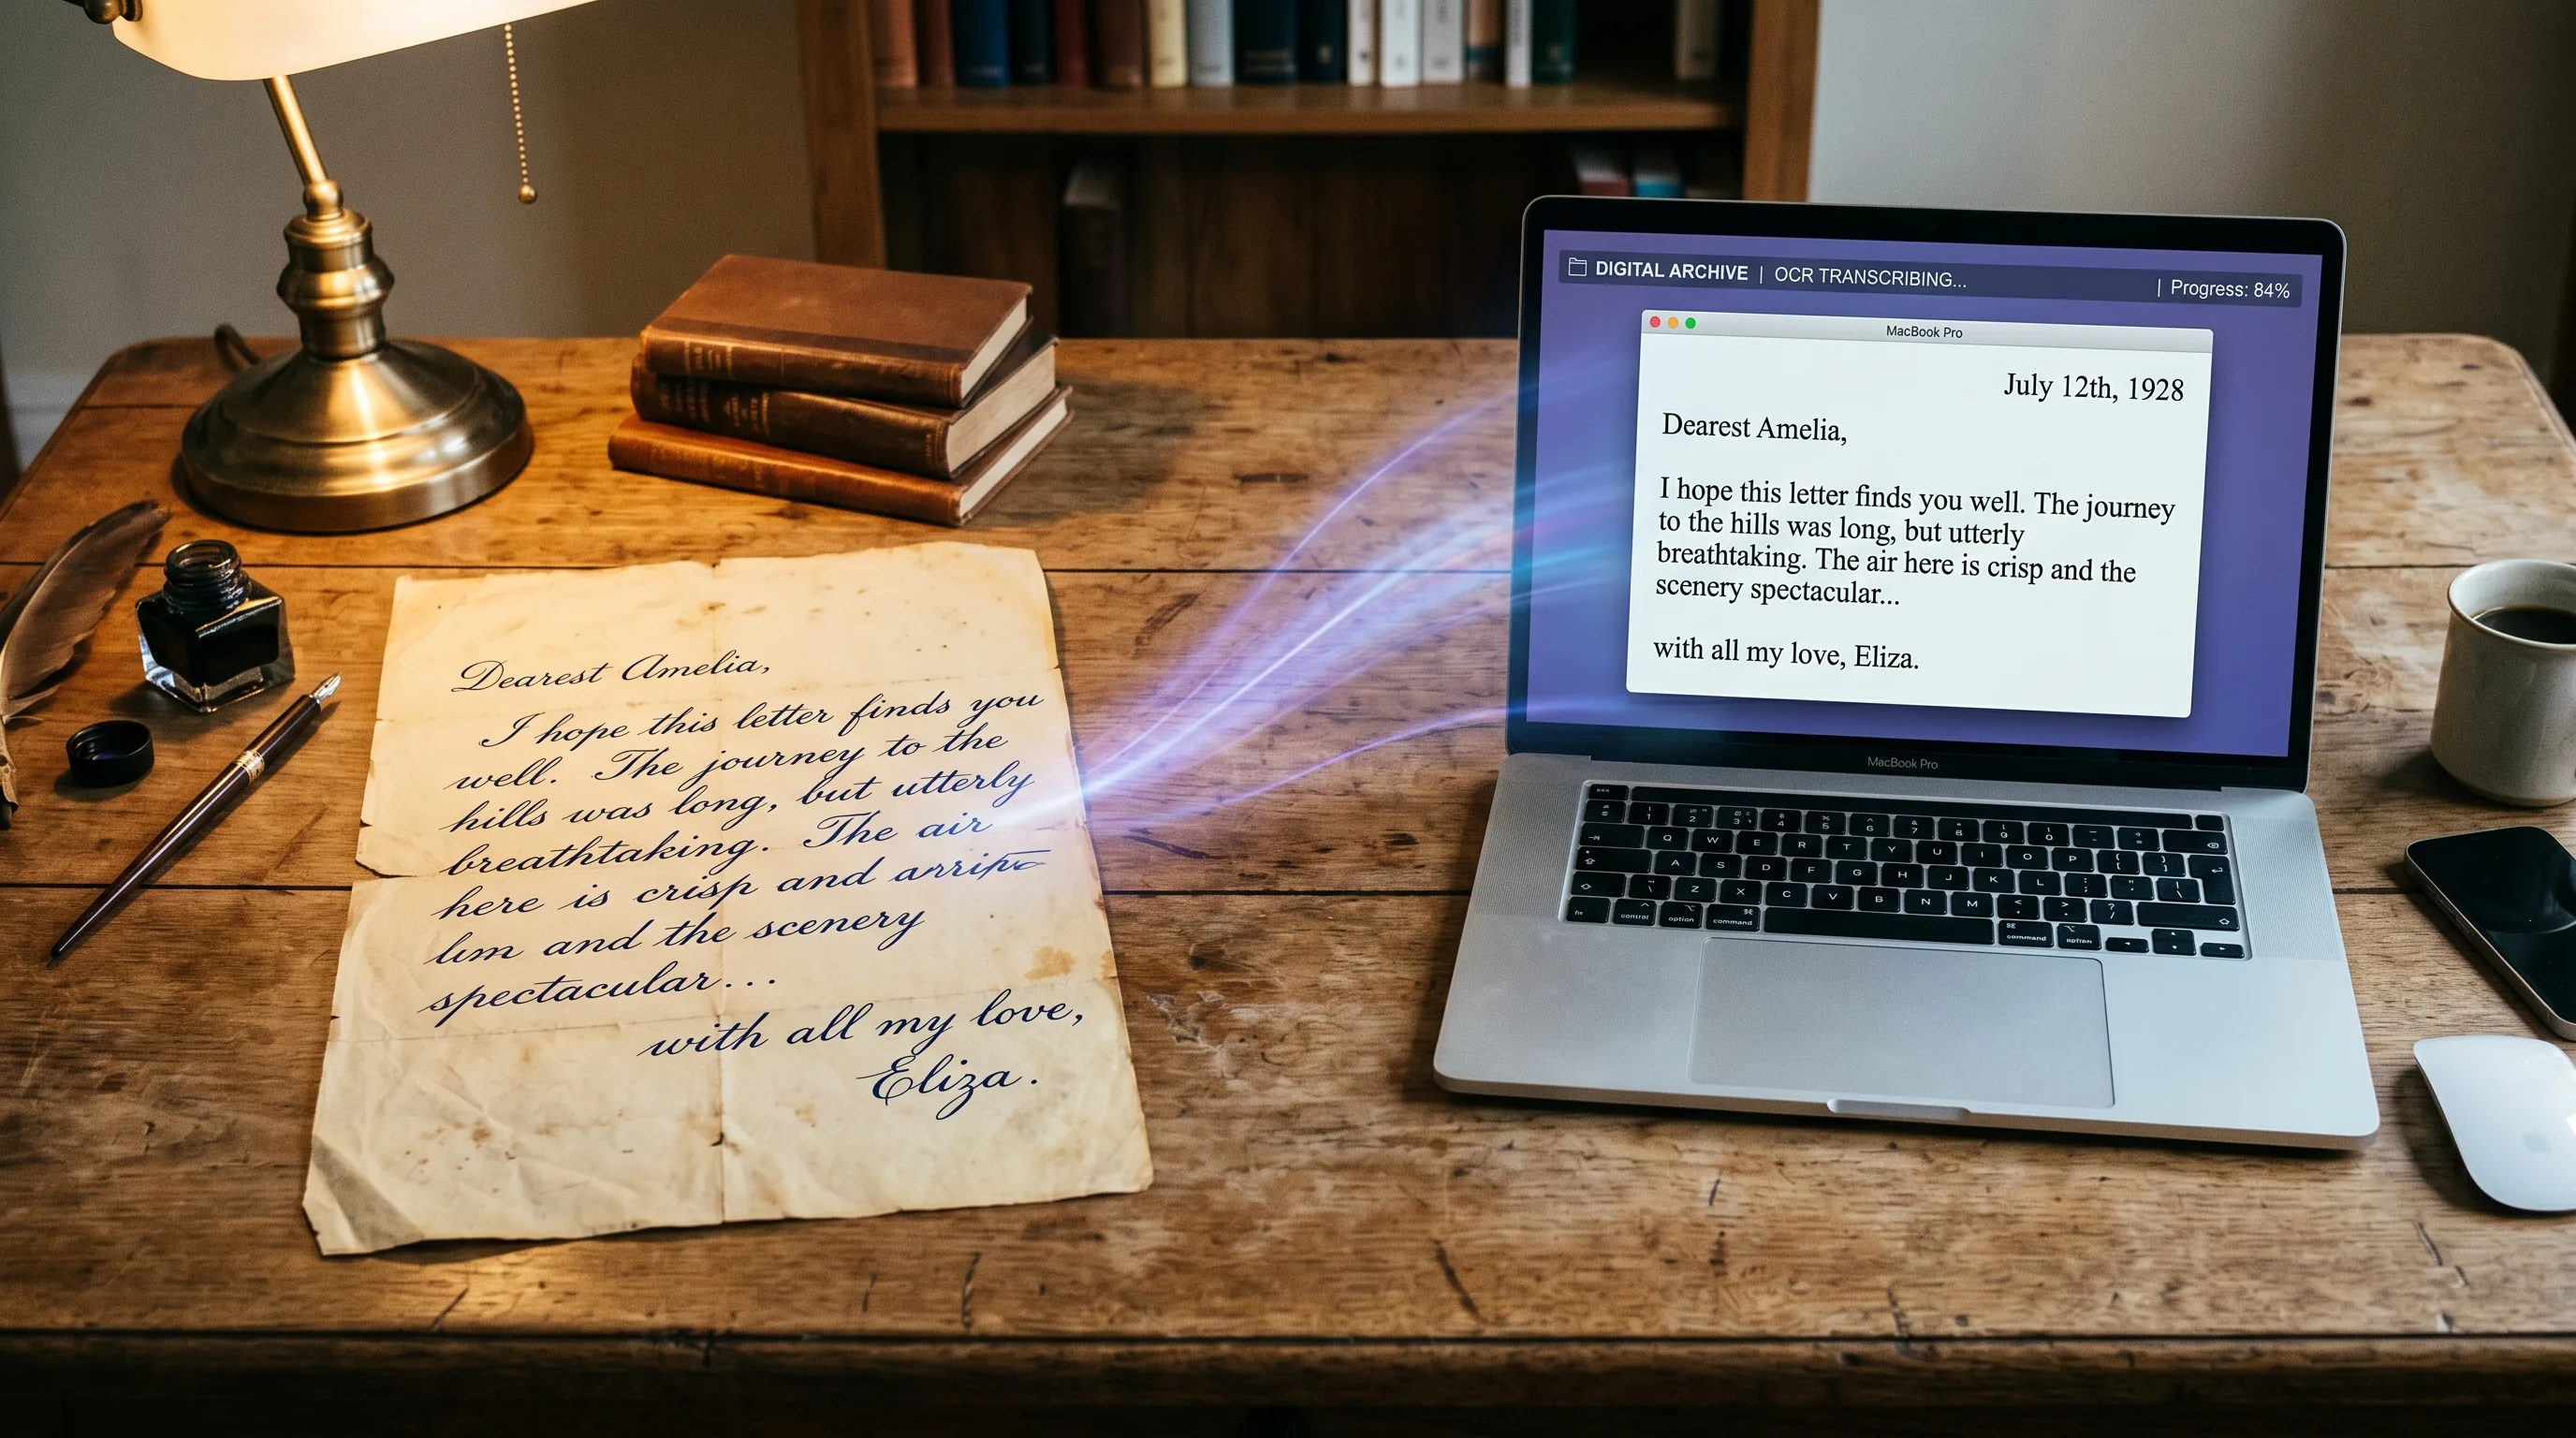 Dearest Amelia,
I hope this letter finds you
well. The journey to the
hills was long, but utterly
breathtaking. The air
here is crisp and
and the scenery
spectacular...
with all my love,
Eliza.
DIGITAL ARCHIVE | OCR TRANSCRIBING... | Progress: 84%
MacBook Pro
July 12th, 1928
Dearest Amelia,
I hope this letter finds you well. The journey
to the hills was long, but utterly
breathtaking. The air here is crisp and the
scenery spectacular...
with all my love, Eliza.
MacBook Pro
1 2 3 4 5 6 7 8 9 0
Q W E R T Y U I O P
A S D F G H J K L
Z X C V B N M
fn control option command command option